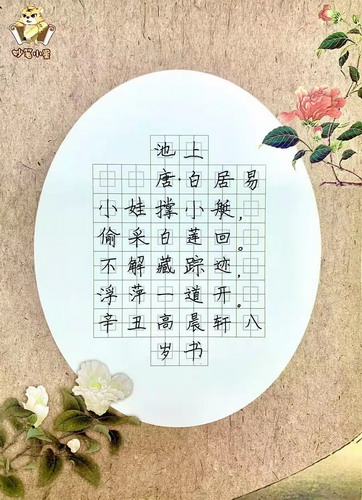 妙笔小虎
池上
唐白居易
小娃撑小艇，
偷采白莲回。
不解藏踪迹，
浮萍一道开。
辛丑高晨轩八
岁书